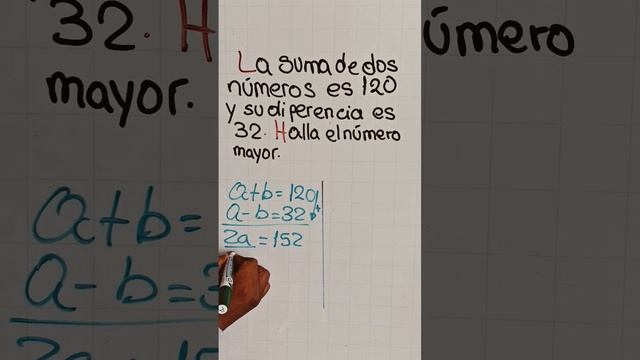 La suma de dos
números es 120
y su diferencia es
32. Halla el número
mayor.
a+b=120
a-b=32
2a=152
32. H
úmero
mayor.
a+b=
a-b=3
2a=15